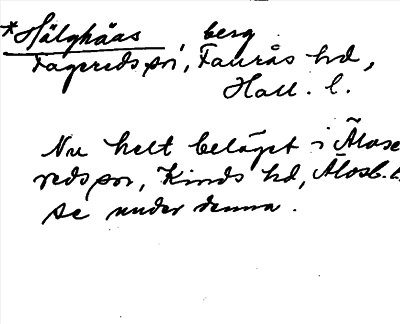 *Hälghåas, berg
Fagereds sn, Faurås hd,
Hall. l.
Nu helt beläget i Älvse-
reds sn, Kinds hd, Älvsb. l.
se under denna.